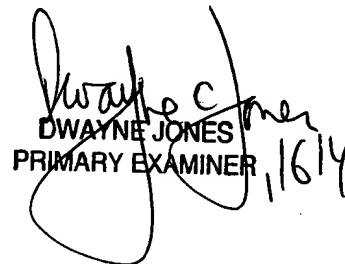 Dwayne C Jones
DWAYNE JONES
PRIMARY EXAMINER , 1614